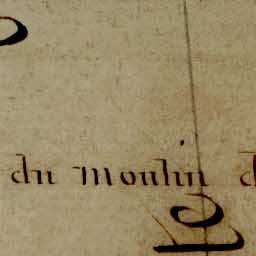 du moulin